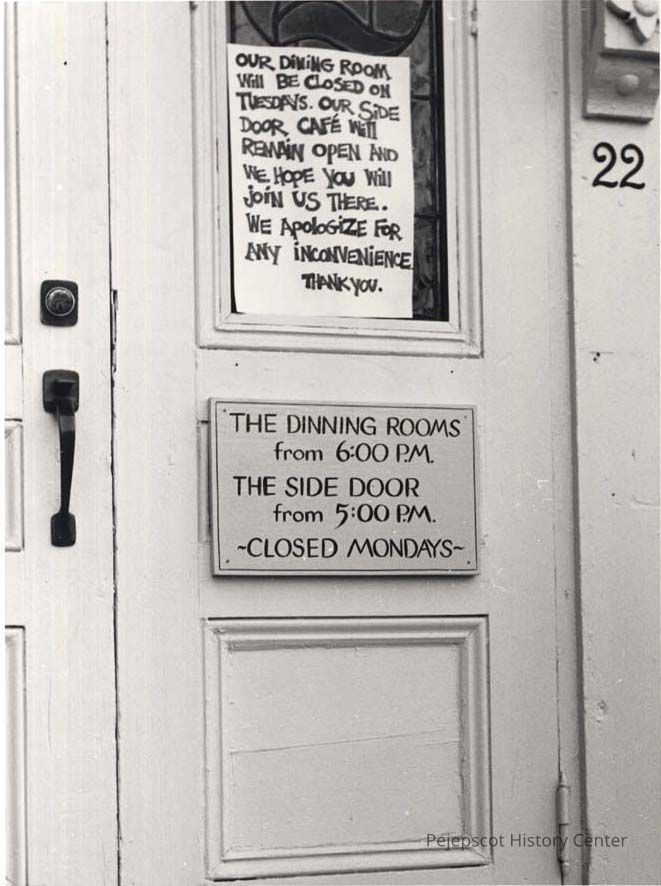 OUR DINING ROOM
Will BE CLOSED ON
TUESDAYS. OUR SiDE
DOOR CAFÉ Will
REMAIN OPEN AND
WE HOPE YOU Will
joiN US THERE.
WE ApoloGiZE FOR
ANY iNCONVENiENCE.
THANK YOU.
22
THE DINNING ROOMS
from 6:00 P.M.
THE SIDE DOOR
from 5:00 P.M.
~CLOSED MONDAYS~
Pejepscot History Center